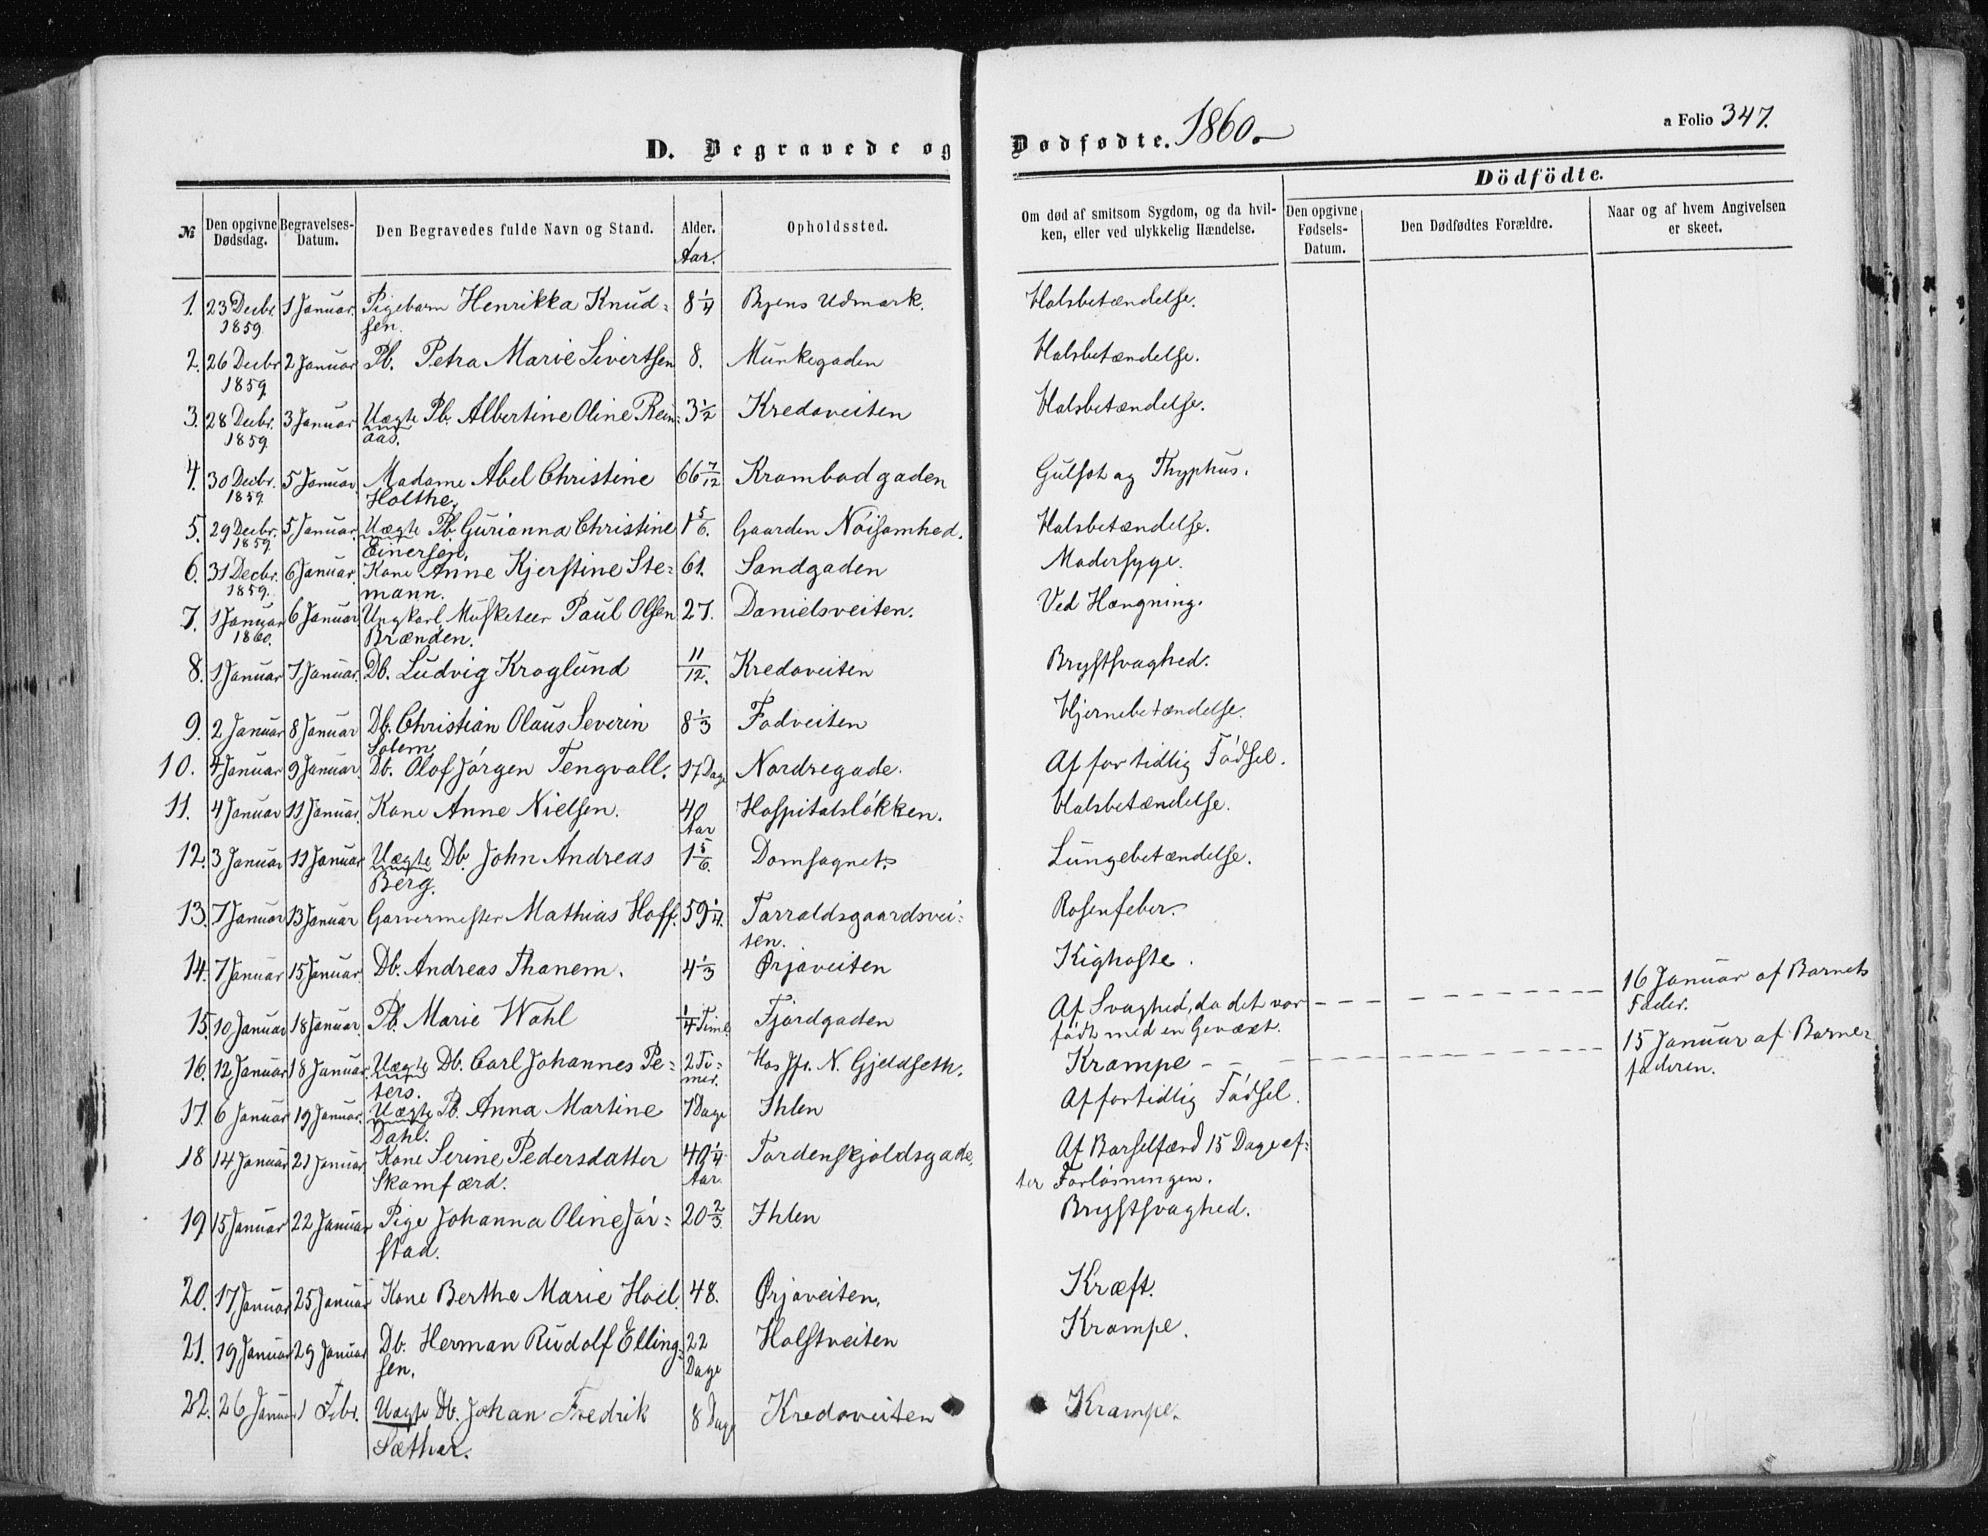 D. Begravede og Dødfødte. 1860. a Folio 347.
Dödfödte.
№ Den opgivne Dødsdag. Begravelses-Datum. Den Begravedes fulde Navn og Stand. Alder. Aar. Opholdssted. Om død af smitsom Sygdom, og da hvilken, eller ved ulykkelig Hændelse. Den opgivne Fødsels-Datum. Den Dødfødtes Forældre. Naar og af hvem Angivelsen er skeet.
1. 23 Decbr. 1 Januar. Pigebarn Henrikka Knud= 8 1/4 Byens Udmark. Halsbetændelse.
1859 sen.
2. 26 Decbr 2 Januar Pb. Petra Marie Sivertsen 8. Munkegaden Halsbetændelse.
1859
3. 28 Decbr. 3 Januar Uægte Pb. Albertine Oline Rein= 3 1/2 Kredoveiten Halsbetændelse.
1859 aas.
4. 30 Decbr. 5 Januar. Madame Abel Christine 66 7/12 Krambodgaden Gulsot og Thyphus.
1859 Holthe,
5. 29 Decbr. 5 Januar. Uægte Pb. Gurianna Christine 1 5/6. Gaarden Nöisomhed. Halsbetændelse.
1859 Einersen.
6. 31 Decbr. 6 Januar. Kone Anne Kjerstine Ste= 61. Sandgaden Modersyge.
1859. mann.
7. 1 Januar 6 Januar Ungkarl Musketeer Paul Olsen 27. Danielsveiten. Ved Hængning.
1860. Brænden.
8. 1 Januar 7 Januar. Db. Ludvig Kroglund 11/12. Kredoveiten Brystsvaghed.
9. 2 Januar 8 Januar Db. Christian Olaus Severin 8 1/3 Fadveiten Hjernebetændelse.
Solem
10. 4 Januar 9 Januar. Db. Olof Jørgen Tengvall. 17 Dage Nordregade. Af for tidlig Födsel.
11. 4 Januar 11 Januar. Kone Anne Nielsen. 40 Aar Hospitalslökken. Halsbetændelse.
12. 3 Januar 11 Januar. Uægte Db. John Andreas 1 5/6. Domsognet. Lungebetændelse.
Berg.
13. 7 Januar 13 Januar Garvermester Mathias Hoff. 59 1/4. Tarraldsgaardsvei= Rosenfeber.
ten.
14. 7 Januar 15 Januar. Db. Andreas Thanem. 4 1/3 Ørjaveiten Kighoste.
15. 10 Januar 18 Januar. Pb. Marie Wahl 1/4 Time Fjordgaden Af Svaghed, da det var 16 Januar af Barnets
født med en Gevæxt. Fader.
16. 12 Januar 18 Januar. Uægte Db. Carl Johannes Pe= 2 Ti= Hos Jfr. N. Gjeldseth. Krampe 15 Januar af Barne=
ters. mer. faderen.
17. 6 Januar 19 Januar. Uægte Pb. Anna Martine 7 Dage Ihlen Af for tidlig Födsel.
Dahl.
18 14 Januar 21 Januar Kone Serine Pedersdatter 49 1/4 Tordenskjoldsgade. Af Barselfærd 15 Dage ef=
Skamfærd. Aar. ter Forlösningen.
19. 15 Januar 22 Januar Pige Johanna Oline Jör= 20 2/3 Ihlen Brystsvaghed.
stad.
20. 17 Januar 25 Januar Kone Berthe Marie Hoel. 48. Ørjaveiten. Kræft.
21. 19 Januar 29 Januar Db. Herman Rudolf Elling= 22 Holstveiten Krampe.
sen. Dage
22. 26 Januar 1 Febr. Uægte Db. Johan Fredrik 8 Dage Kredoveiten Krampe.
Sæther.